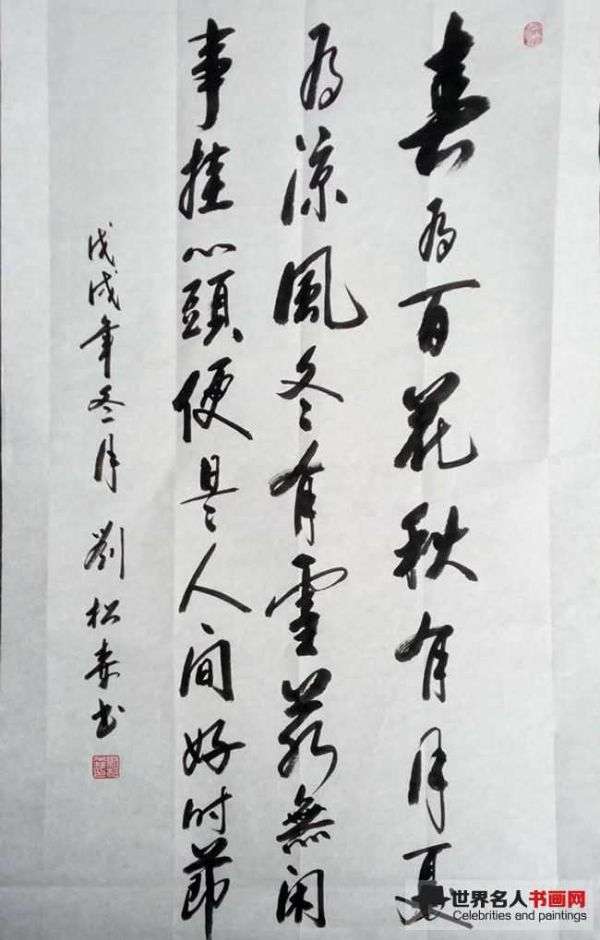 春有百花秋有月夏
有涼風冬有雪若無闲
事挂心頭便是人间好时節
戊戌年冬月 劉松书
世界名人书画网
Celebrities and paintings